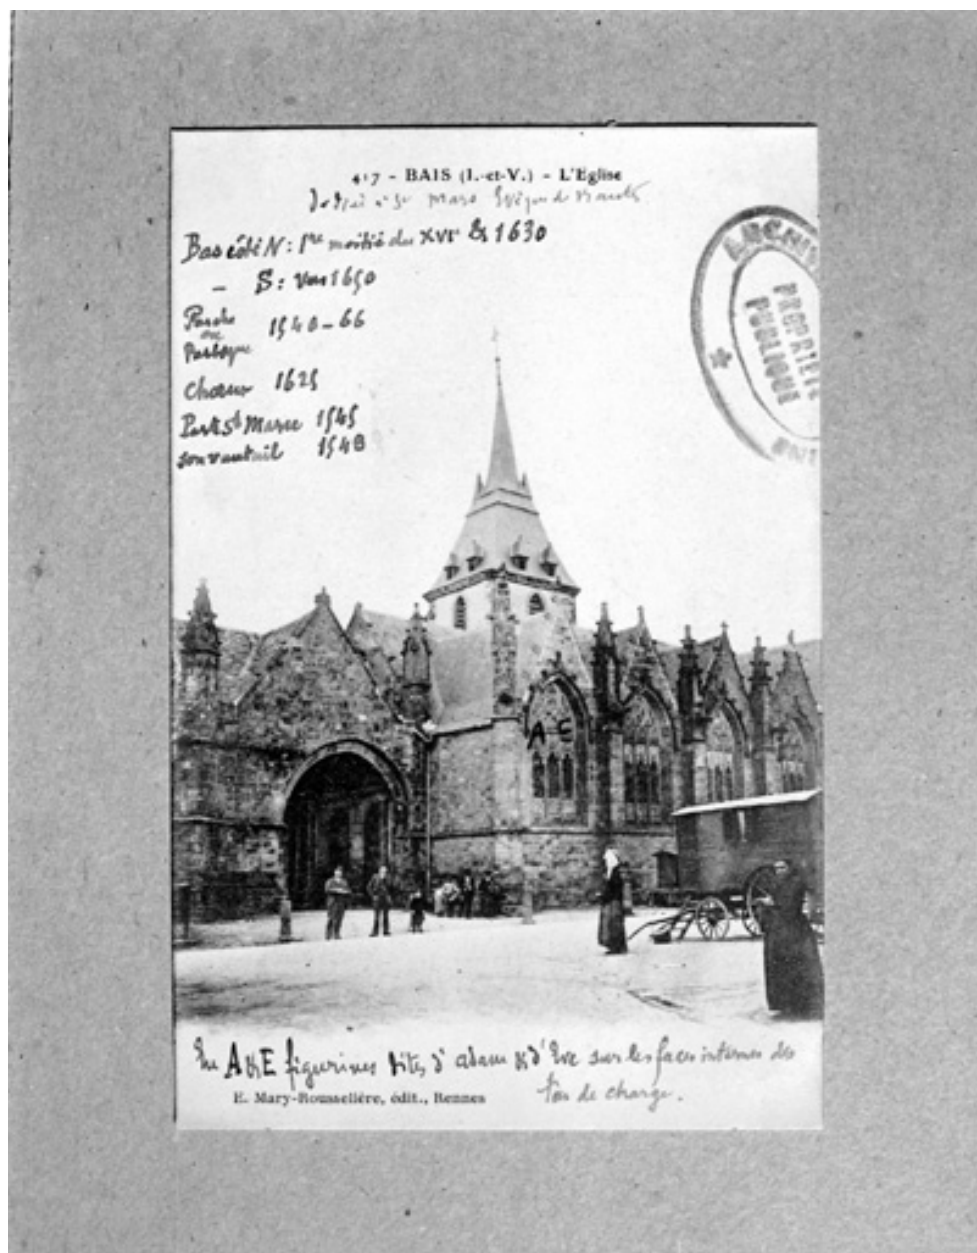 417 - BAIS (I.-et-V.) - L'Eglise
Dédiée à St Mars Evêque de Nantes
Bas côté N : 1re moitié du XVIe & 1630
- S : vers 1650
Porche
ou 1540-66
Chœur 1625
Porte St Marse 1545
son vantail 1548
ARCHIV
PROPRIÉTÉ
PUBLIQUE
A E
En A & E figurines dites d'adam & d'Eve sur les faces internes des
de charge.
E. Mary-Rousselière, édit., Rennes